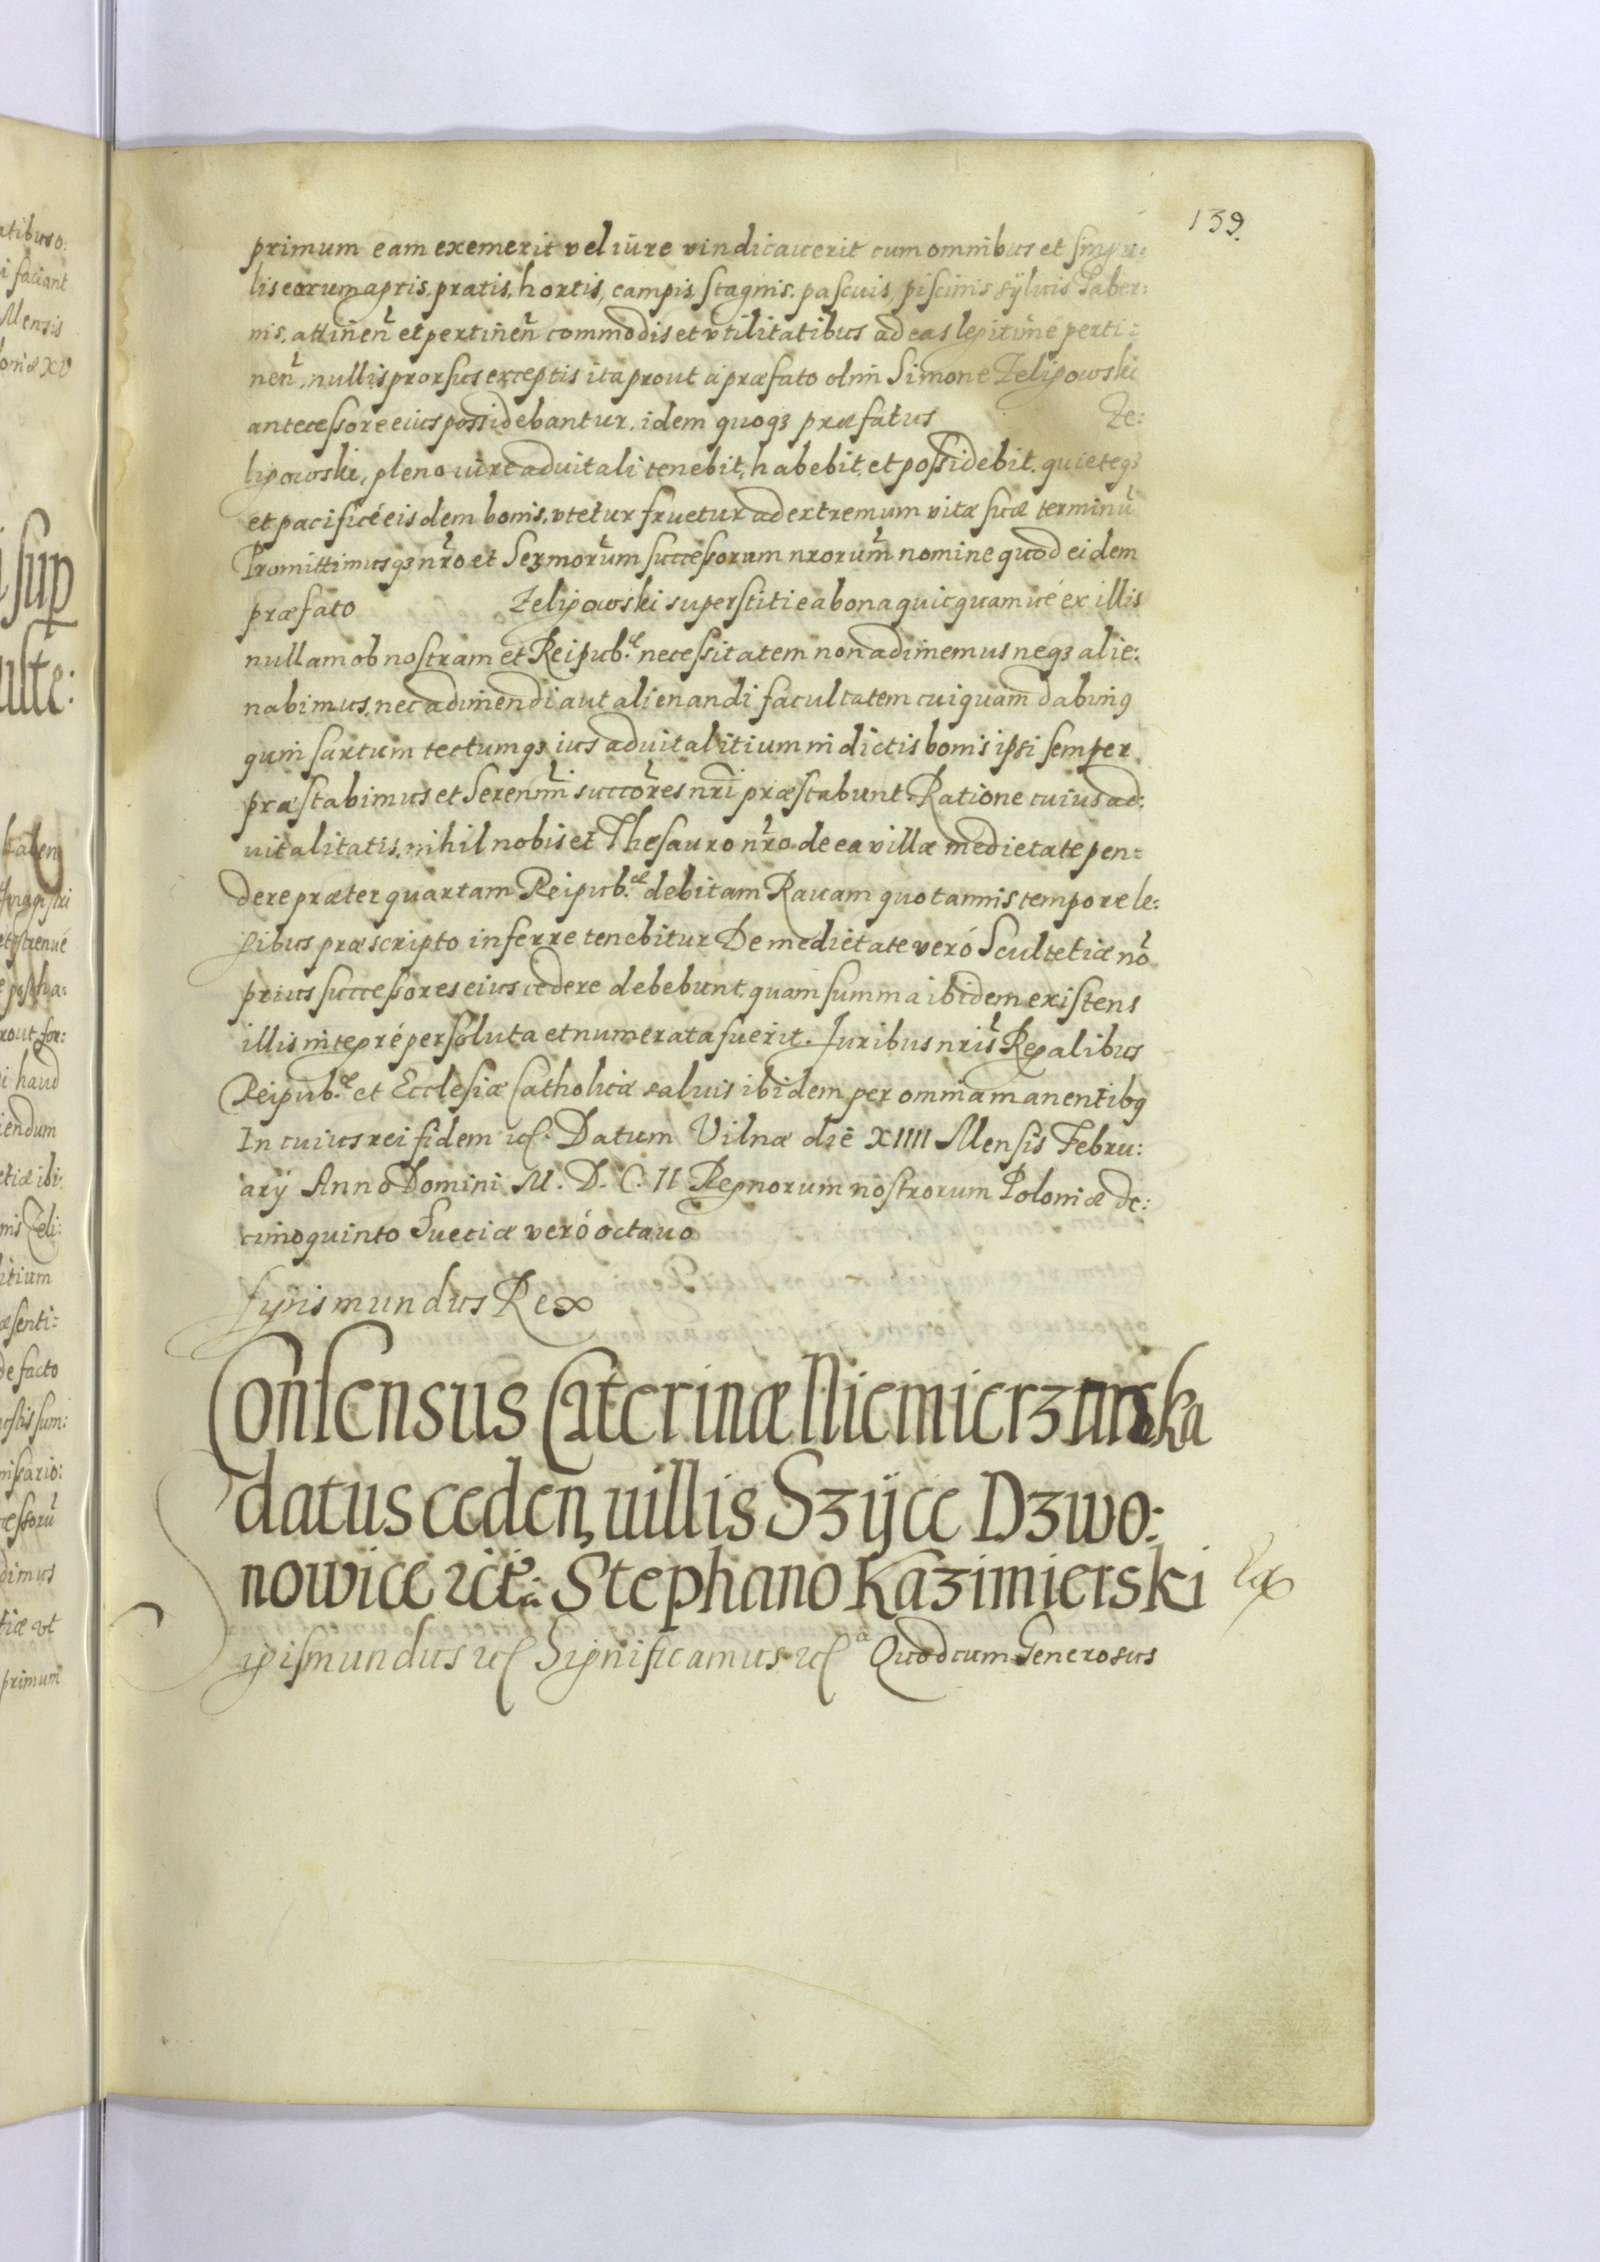 139.
primum eam exemerit vel iure vindicauerit cum omnibus et singu:
lis earum agris, pratis, hortis, campis, stagnis, pascuis, piscinis syluis Taber:
nis, attinen̄ et pertinen̄ commodis et vtilitatibus ad eas legitimé perti:
nen̄, nullis prorsus exceptis ita prout à præfato olim Simone Zelipowski
antecessore eius possidebantur, idem quoqз præfatus Ze:
lipowski, pleno iure aduitali tenebit, habebit, et possidebit, quieteqз
et pacificé eisdem bonis, vtetur fruetur ad extremum vitæ suæ terminū
Promittimusqз nr̄o et Serm̄orum successorum nrorum̄ nomine quod eidem
præfato Zelipowski superstiti ea bona quicquamué ex illis
nullam ob nostram et Reipub.æ necessitatem non adimemus neqз alie:
nabimus, nec adimendi aut alienandi facultatem cuiquam dabimꝰ
quin sartum tectumqз ius aduitalitium in dictis bonis ipsi semper
præstabimus et Serenm̄i succōres nr̄i præstabunt. Ratione cuius ad:
uitalitatis, nihil nobis et Thesauro nr̄o de ea villæ medietate pen:
dere præter quartam Reipub.æ debitam Rauam quotannis tempore le:
gibus præscripto inferre tenebitur De medietate veró Scultetiæ nō
prius successores eius cedere debebunt, quam summa ibidem existens
illis integré persoluta et numerata fuerit. Juribus nr̄is Regalibus
Reipub.æ et Ecclesiæ Catholicæ saluis ibidem per omnia manentibꝰ
In cuius rei fidem ⁊c. Datum Vilnæ diē XIIII Mensis Febru:
arÿ Anno Domini M. D. C. II Regnorum nostrorum Poloniæ de:
cimoquinto Sueciæ veró octauo
Sygismundus Rex
Consensus Caterinæ Niemierzinska
datus ceden, uillis Szÿce Dzwo:
nowice ⁊cẗ: Stephano Kazimierski
Sigismundus ⁊c Significamus ⁊c Quod cum Generosus